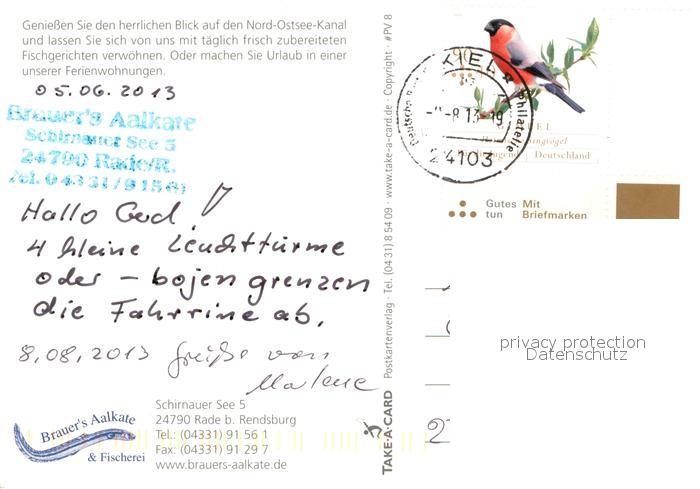 Genießen Sie den herrlichen Blick auf den Nord-Ostsee-Kanal
und lassen Sie sich von uns mit täglich frisch zubereiteten
Fischgerichten verwöhnen. Oder machen Sie Urlaub in einer
unserer Ferienwohnungen.
05.06.2013
Brauer's Aalkate
Schirnauer See 5
24790 Rade/R.
Tel. 04331/91561
Hallo Gerd!
4 kleine Leuchttürme
oder – bojen grenzen
die Fahrrine ab.
8.08.2013 Grüße von
Malene
Brauer's Aalkate
& Fischerei
Schirnauer See 5
24790 Rade b. Rendsburg
Tel.: (04331) 91 56 1
Fax: (04331) 91 29 7
www.brauers-aalkate.de
TAKE-A-CARD Postkartenverlag · Tel. (04 31) 8 54 09 · www.take-a-card.de · Copyright · #PV 8
90
KIEL
Philatelie
-8.13-19
24103
Deutschland
Gutes Mit
tun Briefmarken
privacy protection
Datenschutz